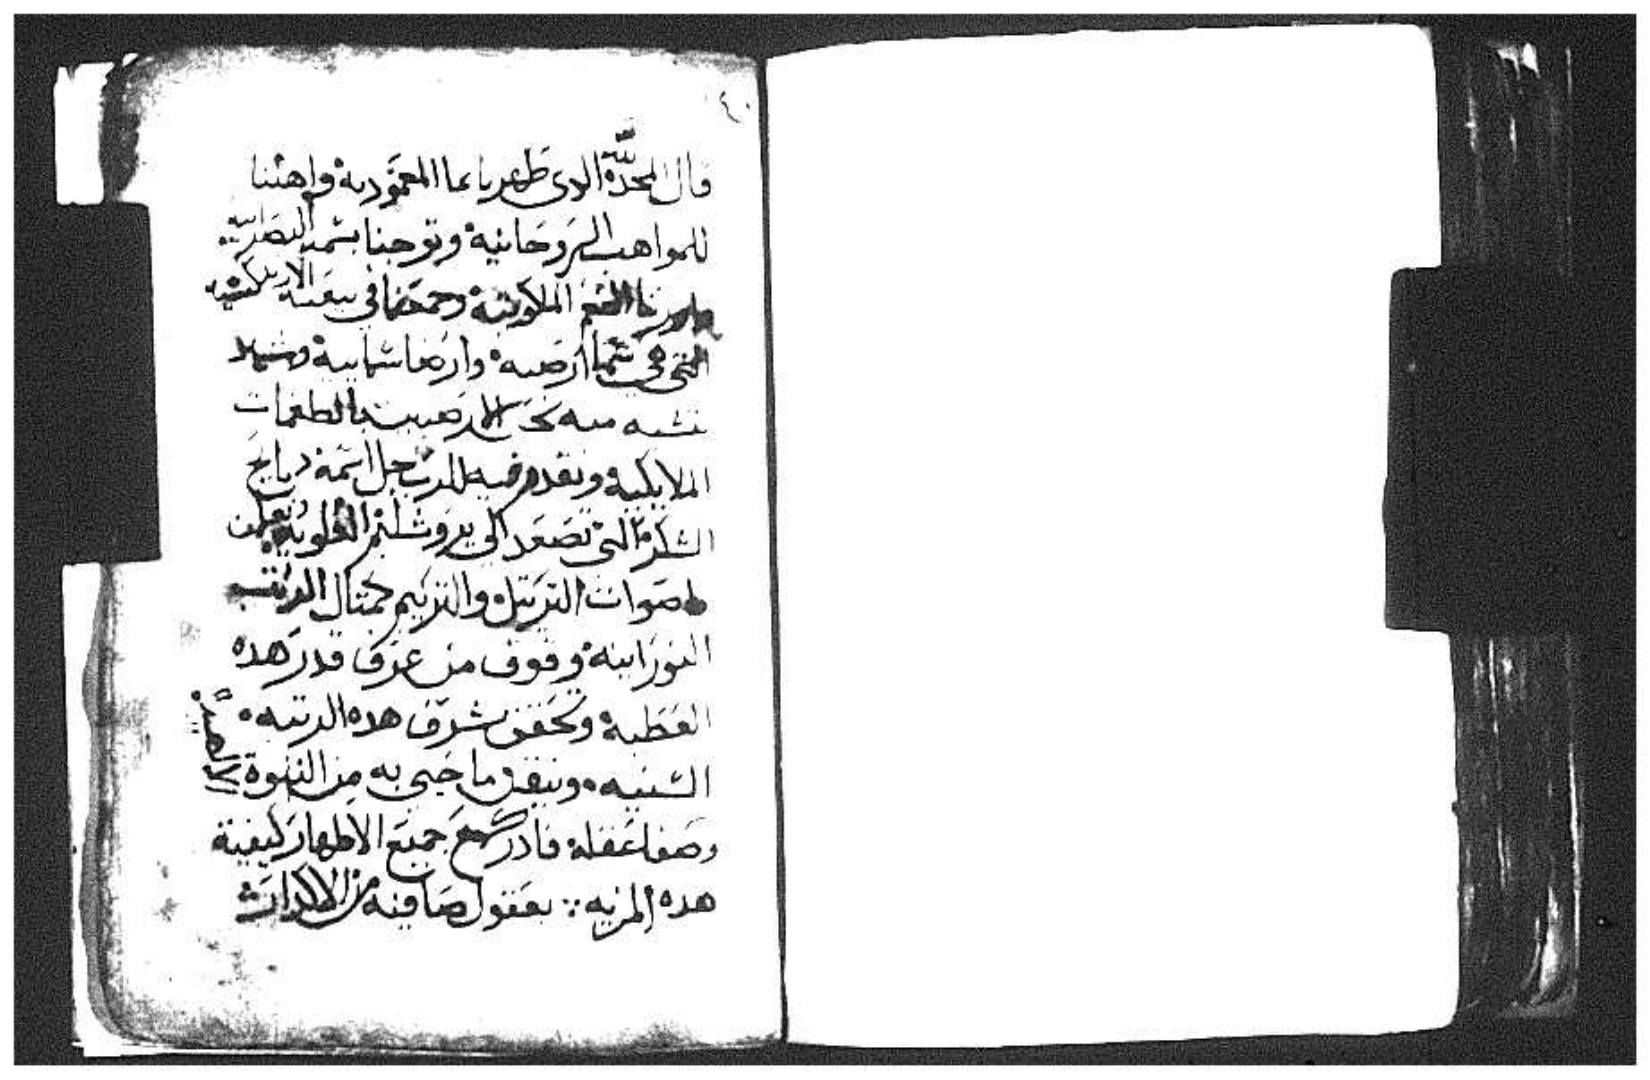 ٤٠
قال الحمد لله الدى طهرنا بما المعموديه واهلنا
للمواهب الروحانيه وتوجنا بسمه النصرانيه
النعم الملكوتيه وجمعنا فى بيعته الارتدكسيه
التى هى سما ارضيه وارضا سماييه
نتشبه فيه نحن الارضيين بالطغمات
الملايكيه ونقدم فيه للرب جل اسمه دبايح
الشكر التى تصعد الى يروشليم العلويه ونعلن
اصوات الترتيل والترنيم كمتال المراتب
النورانيه وقوف من عرف قدر هده
العطيه وتحقق شرف هده الرتبه
السنيه وتيقن ما حبى به من النبوة الالهيه
وصفا عقله فادرك مع جميع الاطهار كيفية
هده المزيه بعقول صافيه من الاكدار